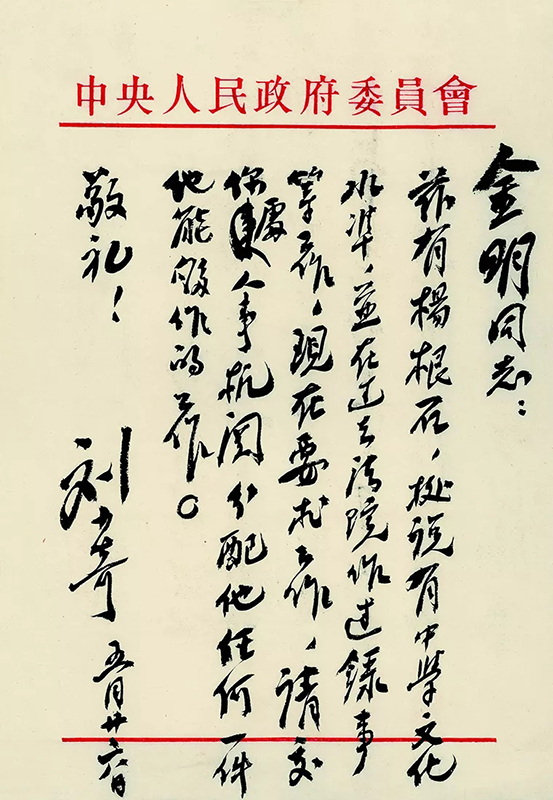 中央人民政府委員會
金明同志：
茲有楊根石，据说有中學文化
水準，並在过去法院作过錄事
等工作，現在要求工作，請交
你處人事机関分配他任何一件
他能够作的工作。
敬礼！
刘少奇 五月廿六日